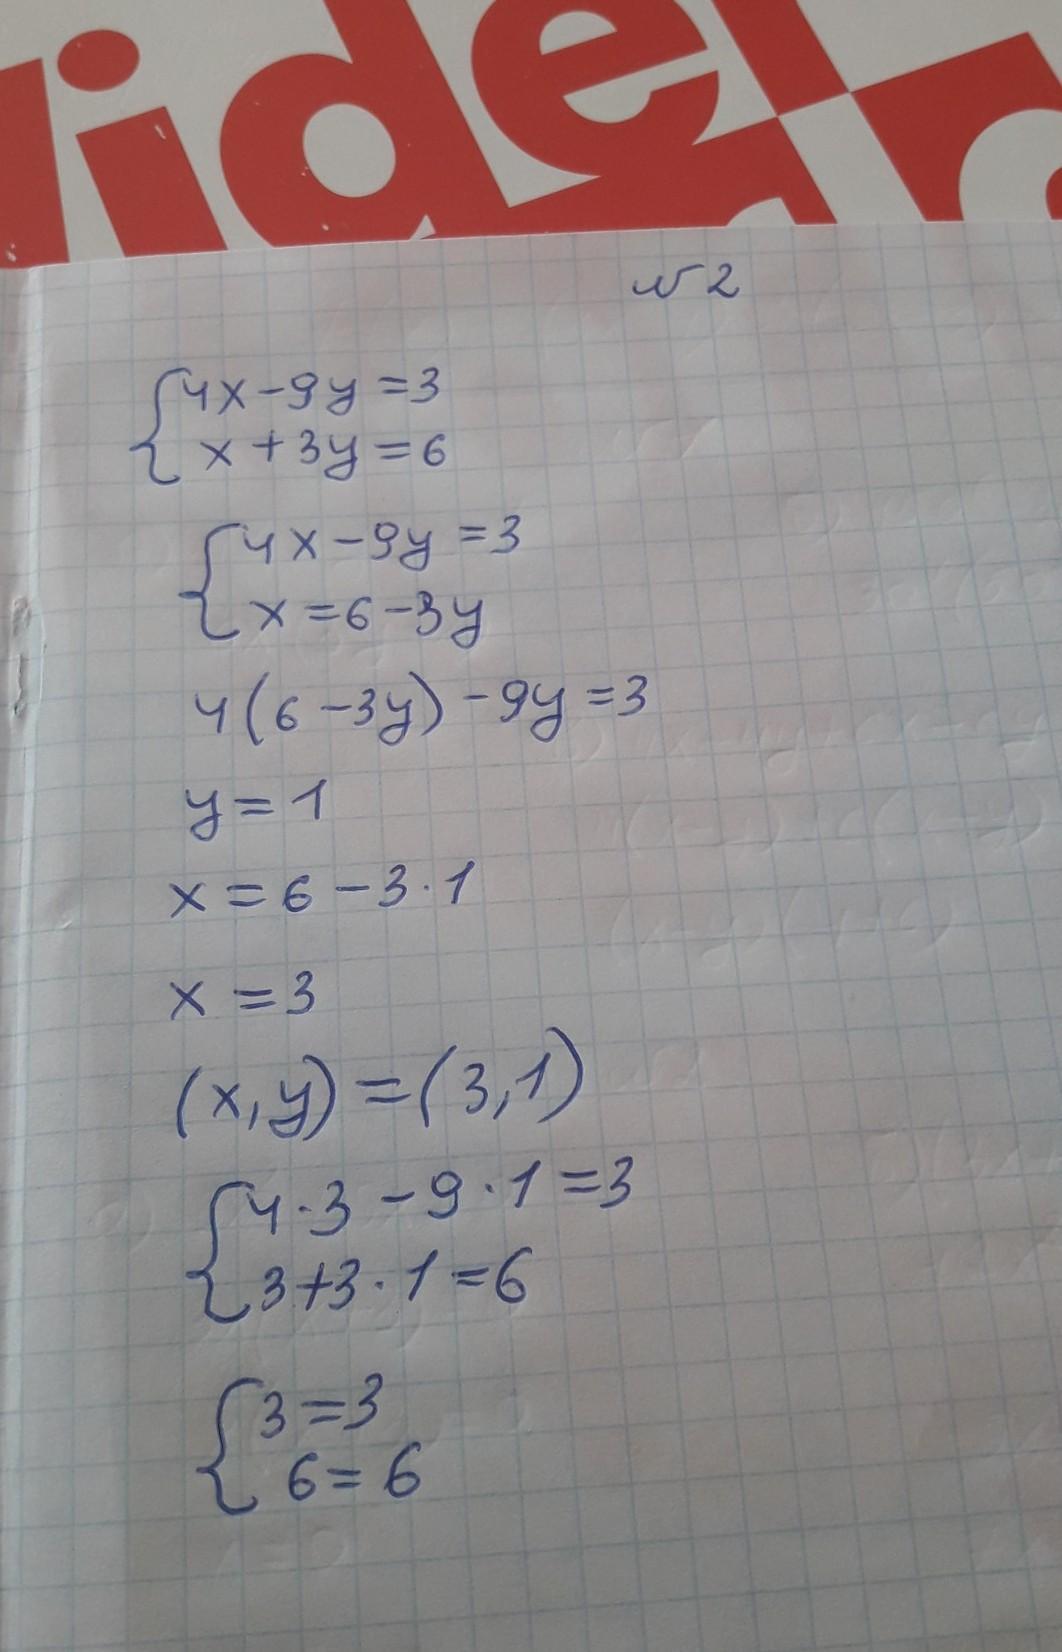 videl
№2
{4x-9y=3
x+3y=6
{4x-9y=3
x=6-3y
4(6-3y)-9y=3
y=1
x=6-3·1
x=3
(x,y)=(3,1)
{4·3-9·1=3
3+3·1=6
{3=3
6=6